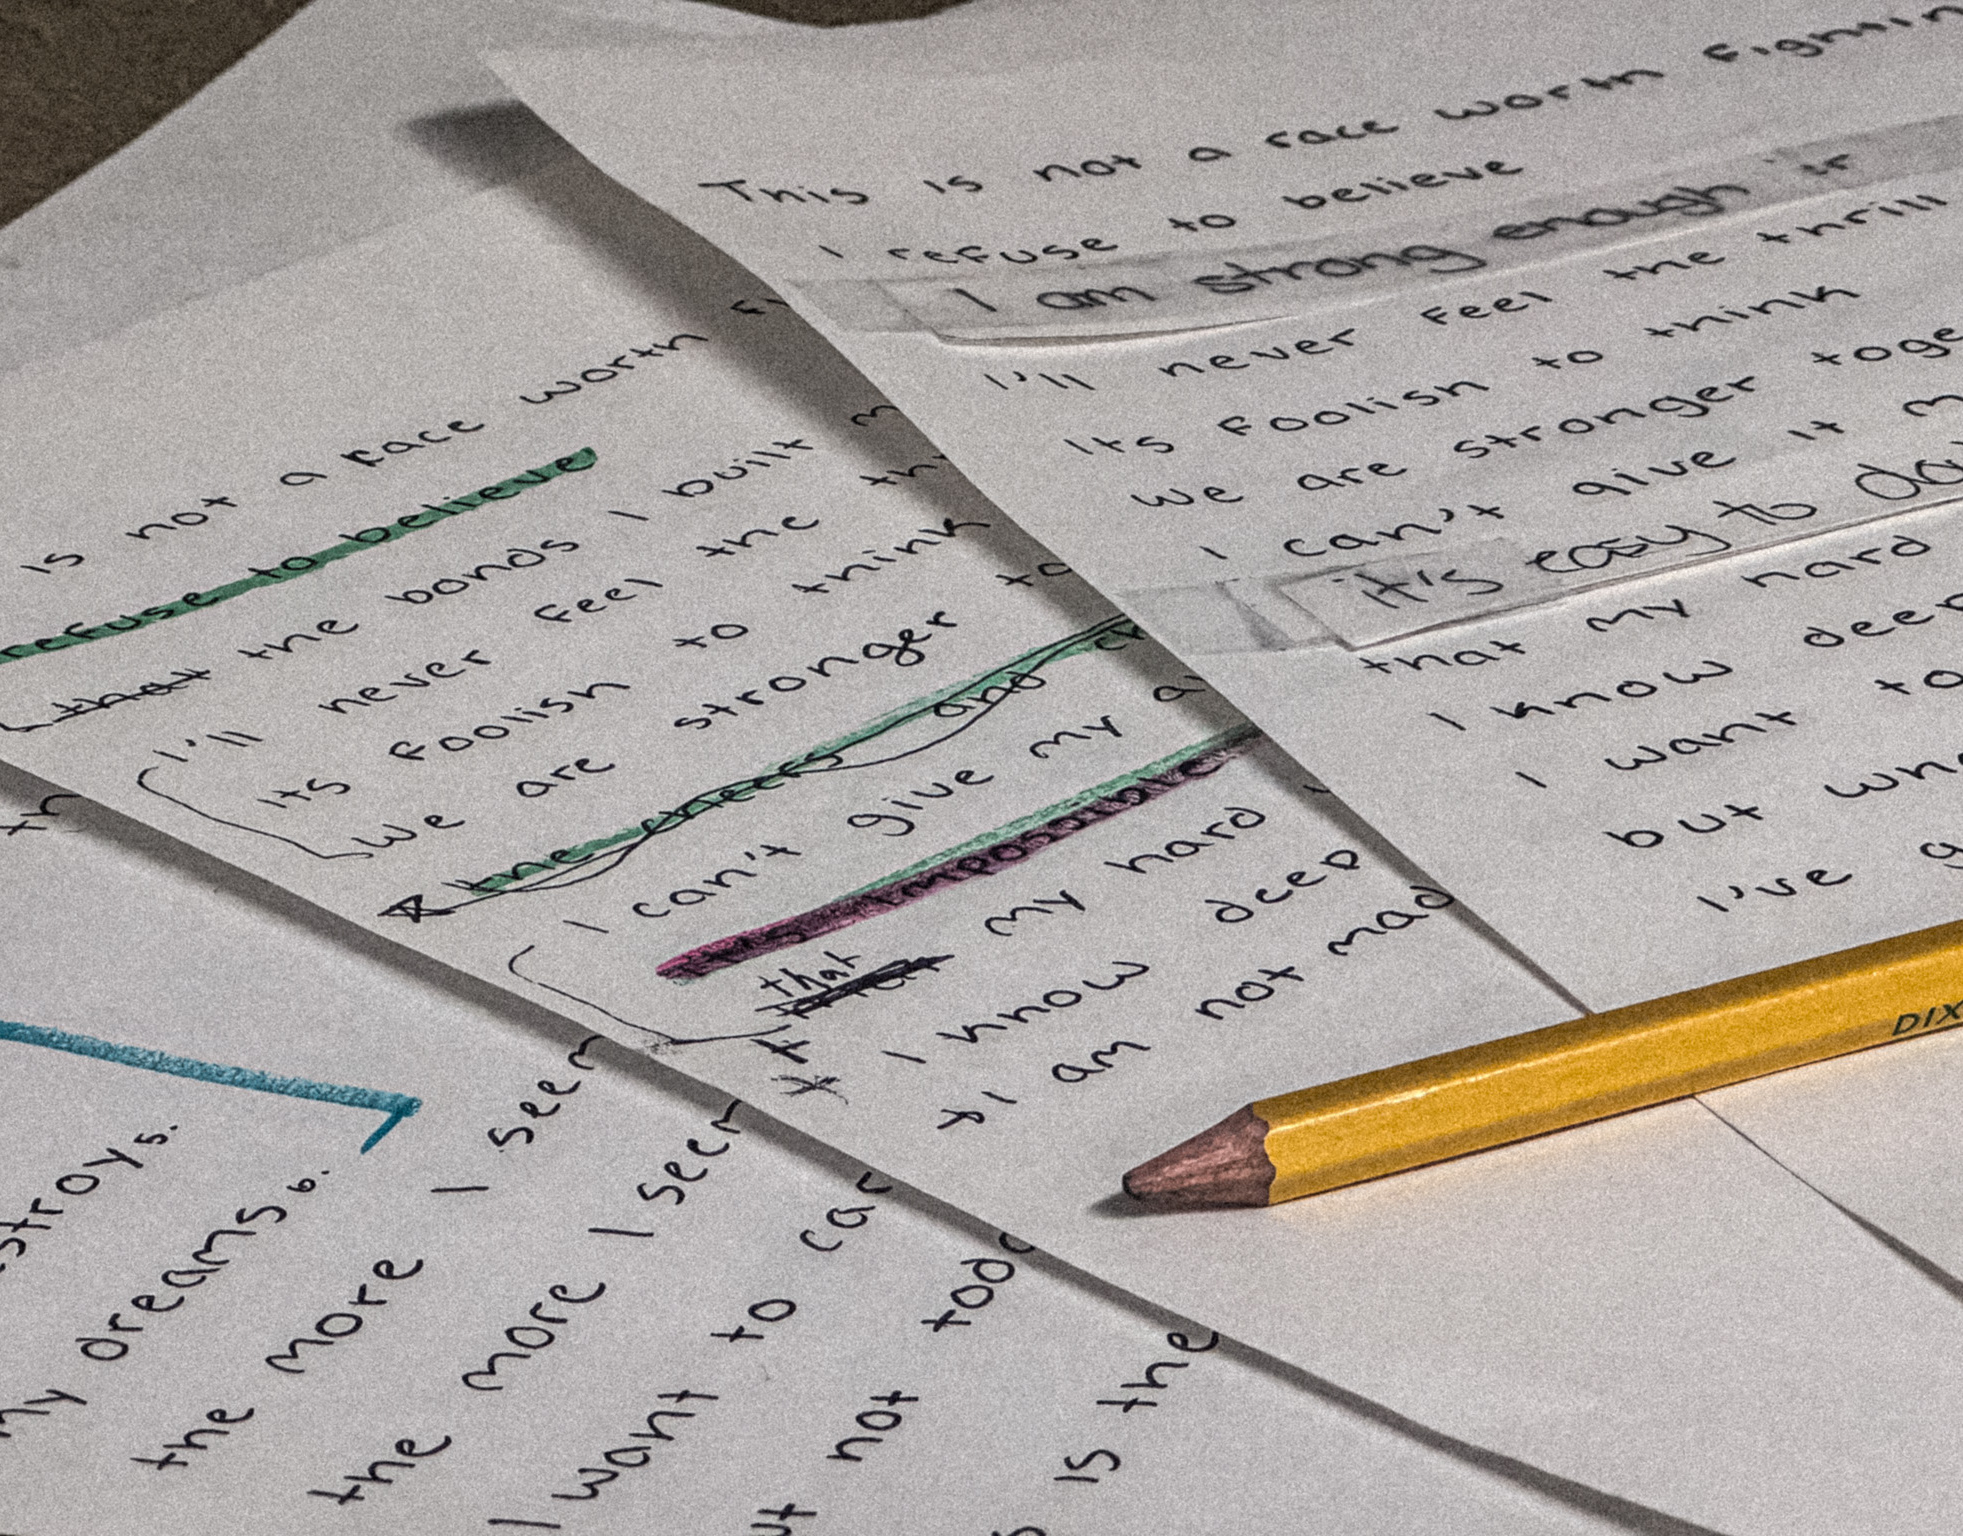 This is not a race worth fightin
I refuse to believe
I am strong enough
I'll never feel the thrill
Its foolish to think
We are stronger toge
I can't give it m
it's easy to do
that my hard
I know deep
I want to
but whe
I've g
is not a race worth f
refuse to believe
that the bonds I built m
I'll never feel the th
Its foolish to think
We are stronger to
the cheers and
I can't give my a
it's impossible
that
my hard
I know deep
I am not mad
th
stroys.
my dreams.
the more I seem
the more I seem
I want to car
ut not toda
s is the
DIX